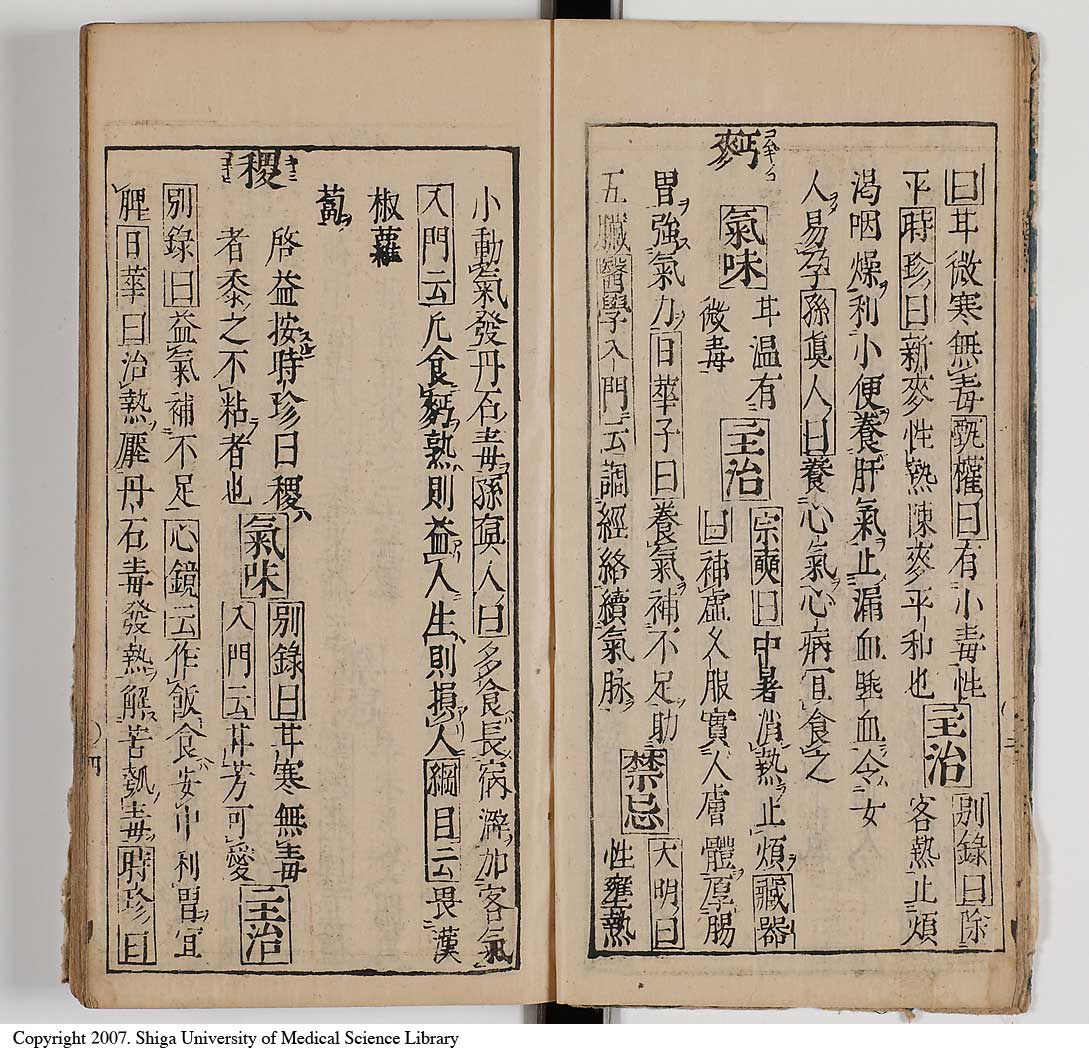 曰甘微寒無毒甄權曰有小毒性
平時珍曰新麥性熱陳麥平和也
主治
別錄曰除
客熱止煩
渴咽燥利小便養肝氣止漏血唾血令女
人易孕孫眞人曰養心氣心病宜食之
麫
氣味
甘温有
微毒
主治
宗奭曰中暑消熱止煩藏器
曰補虛久服實人膚體厚腸
胃強氣力日華子曰養氣補不足助
五臟醫學入門云調經絡續氣脉
禁忌
大明曰
性壅熱
小動氣發丹石毒孫眞人曰多食長病澼加客氣
入門云凡食麫熟則益人生則損人綱目云畏漢
椒蘿
蔔
稷
啓益按時珍曰稷
者黍之不粘者也
氣味
別錄曰甘寒無毒
入門云甘芳可愛
主治
別錄曰益氣補不足心鏡云作飯食安中利胃宜
脾日華曰治熱壓丹石毒發熱解苦瓠毒時珍曰
四
Copyright 2007. Shiga University of Medical Science Library